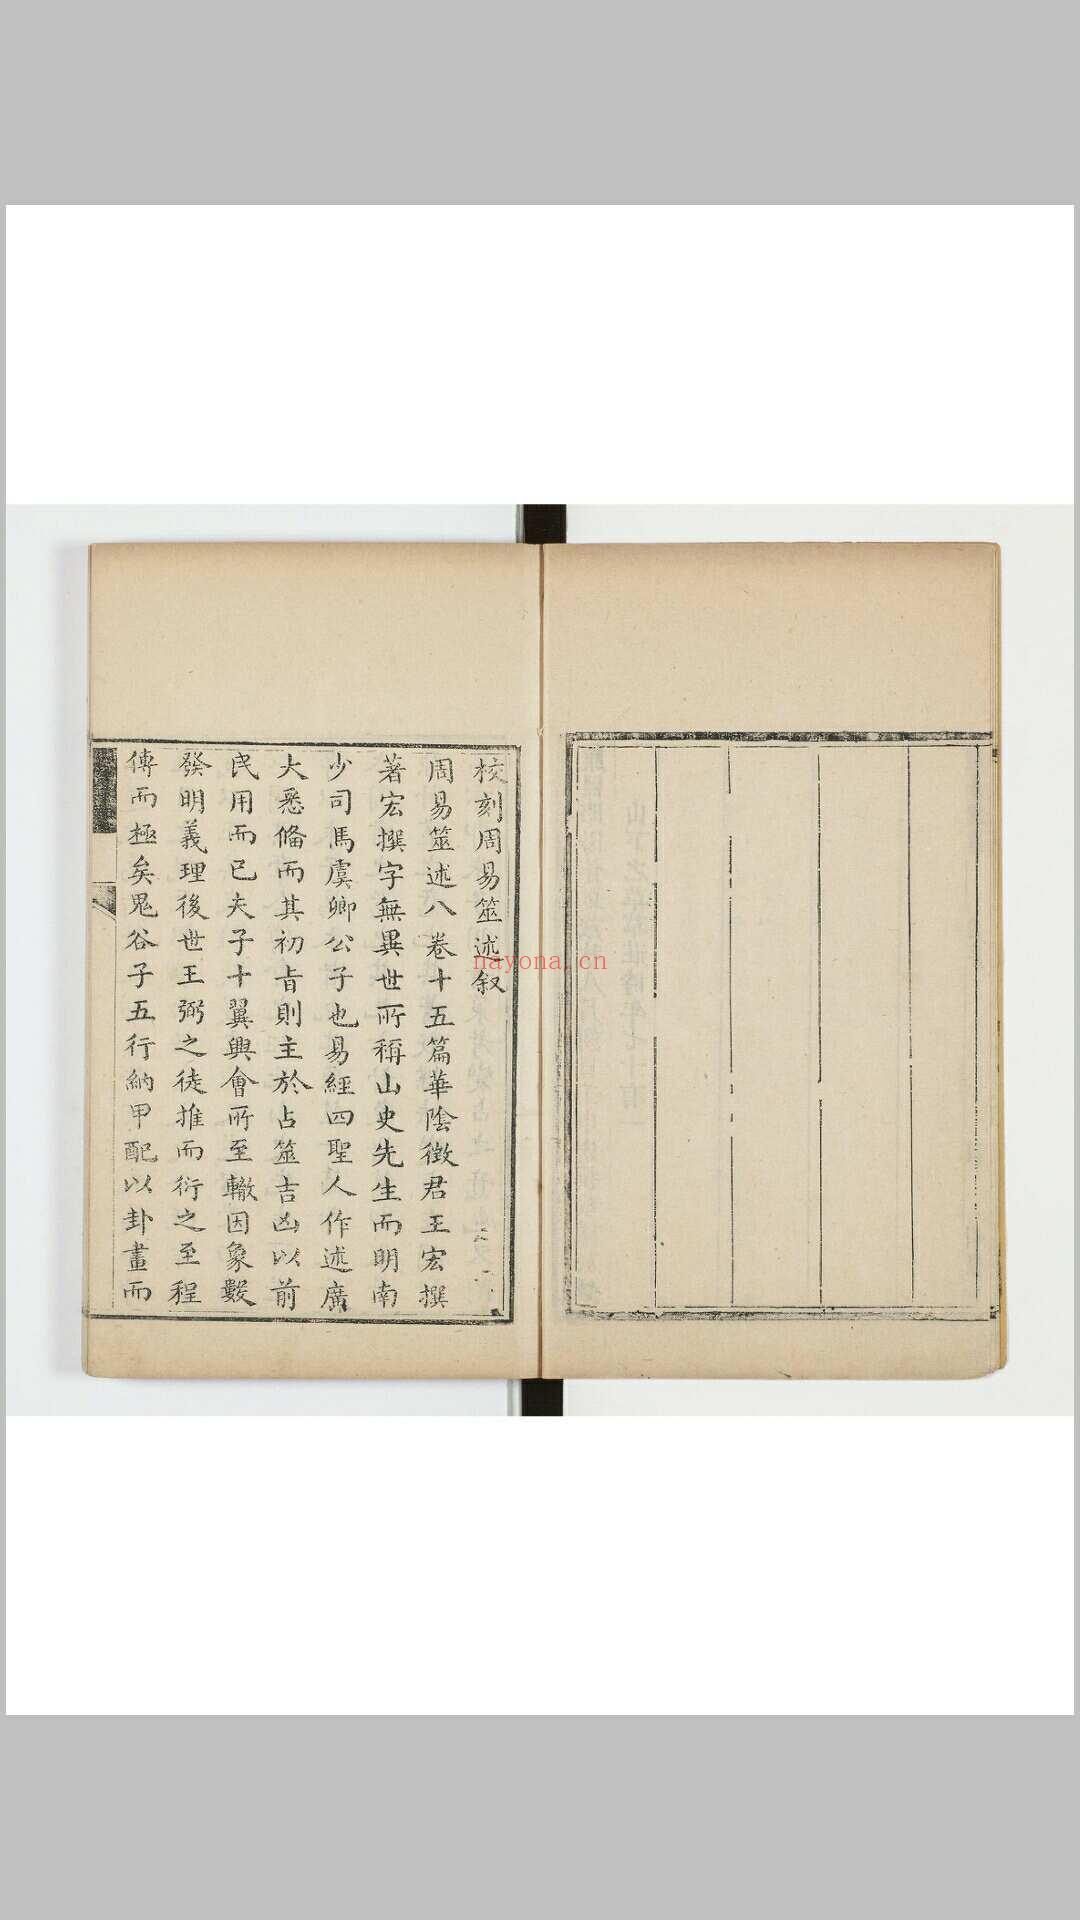 校刻周易筮述叙
周易筮述八卷十五篇華陰徵君王宏撰
著宏撰字無異世所稱山史先生而明南
少司馬虞卿公子也易經四聖人作述廣
大悉俻而其初㫖則主於占筮吉凶以前
民用而已夫子十翼興會所至轍因象數
發明義理後世王弼之徒推而衍之至程
傳而極矣鬼谷子五行納甲配以卦畫而
nayona.cn